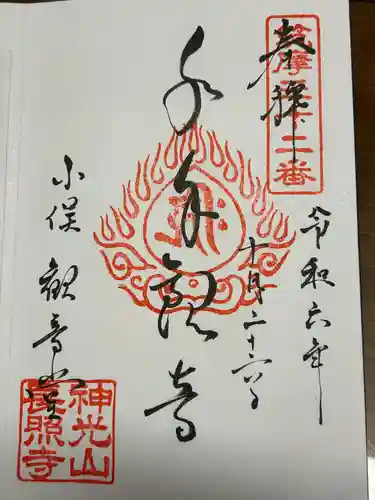 奉拝
筑摩三十二番
令和六年
十月二十六日
千手観音
小俣 観音堂
神光山
長照寺